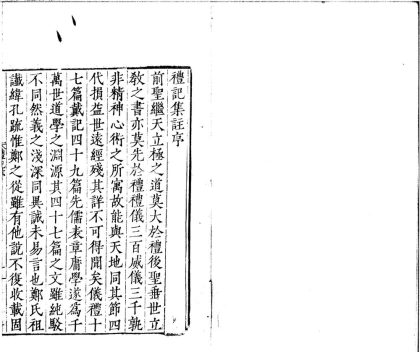 禮記集註序
前聖繼天立極之道莫大於禮後聖垂世立
敎之書亦莫先於禮禮儀三百威儀三千孰
非精神心術之所寓故能與天地同其節四
代損益世遠經殘其詳不可得聞矣儀禮十
七篇戴記四十九篇先儒表章庸學遂爲千
萬世道學之淵源其四十七篇之文雖純駁
不同然義之淺深同異誠未易言也鄭氏祖
讖緯孔疏惟鄭之從雖有他說不復收載固